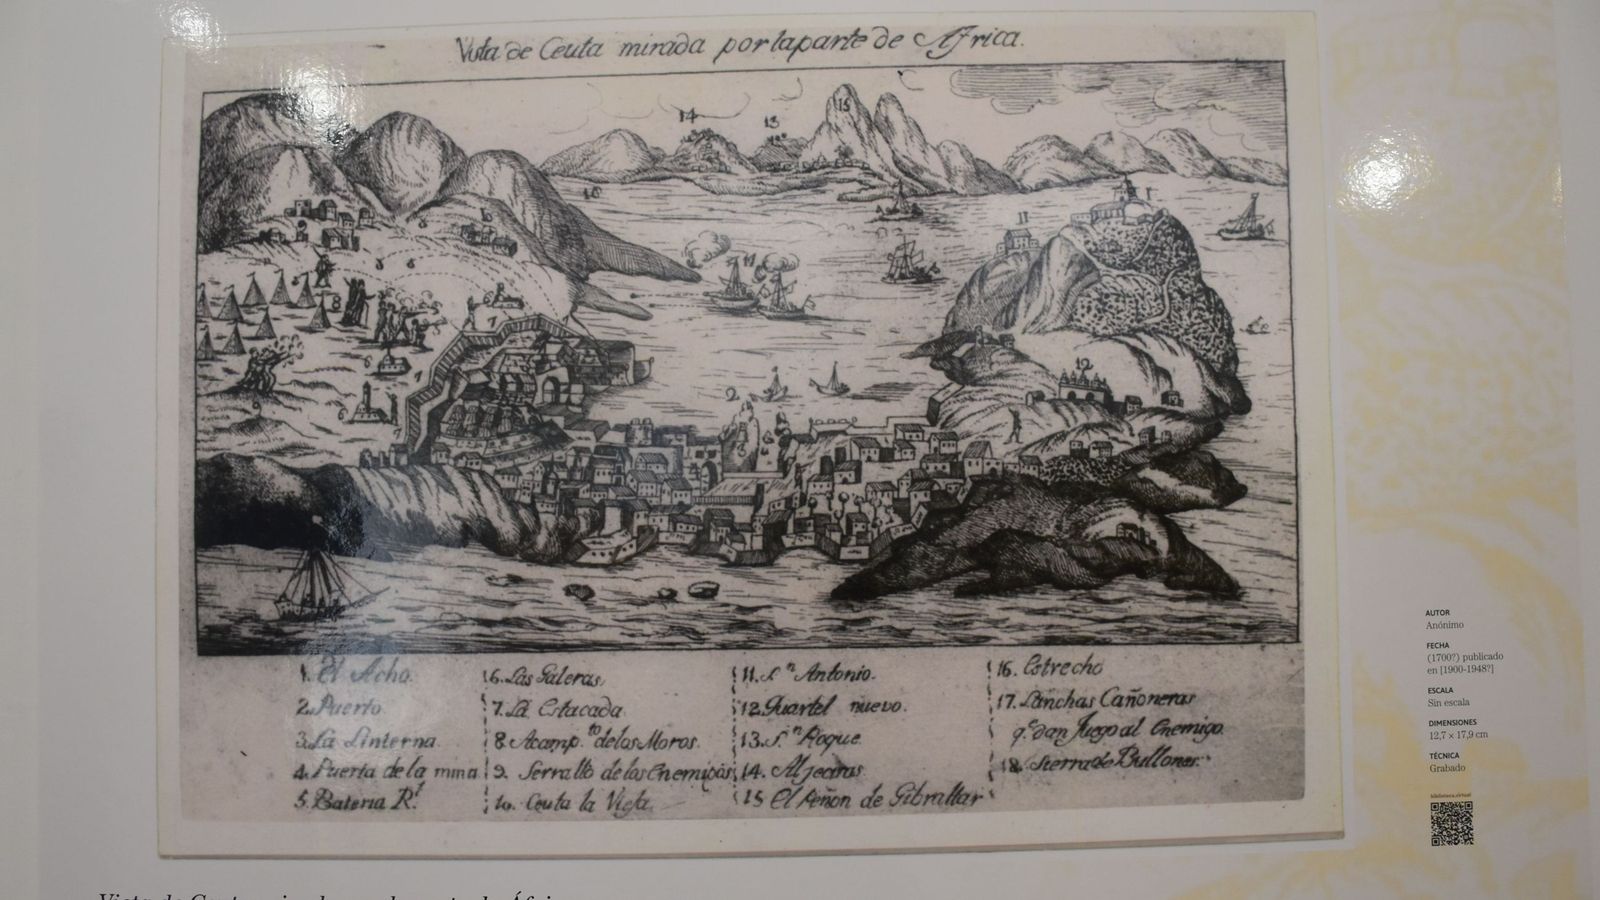 Vista de Ceuta mirada por la parte de Africa.
14
13
15
16
11
17
12
2
8
7
6
9
1. El Acho.
2. Puerto.
3. La Linterna.
4. Puerta de la mina
5. Bateria R.l
6. Las Galeras.
7. La Estacada
8. Acamp.to de los Moros.
9. Serrallo de los Enemigos.
10. Ceuta la Vieja
11. S.n Antonio.
12. Quartel nuevo.
13. S.n Roque.
14. Aljeciras
15 El Peñon de Gibraltar
16. Estrecho
17. Lanchas Cañoneras
q.e dan fuego al Enemigo.
18. Sierra de Bullones.
AUTOR
Anónimo
FECHA
(1700?) publicado
en [1900-1948?]
ESCALA
Sin escala
DIMENSIONES
12,7 × 17,9 cm
TÉCNICA
Grabado
biblioteca.virtual